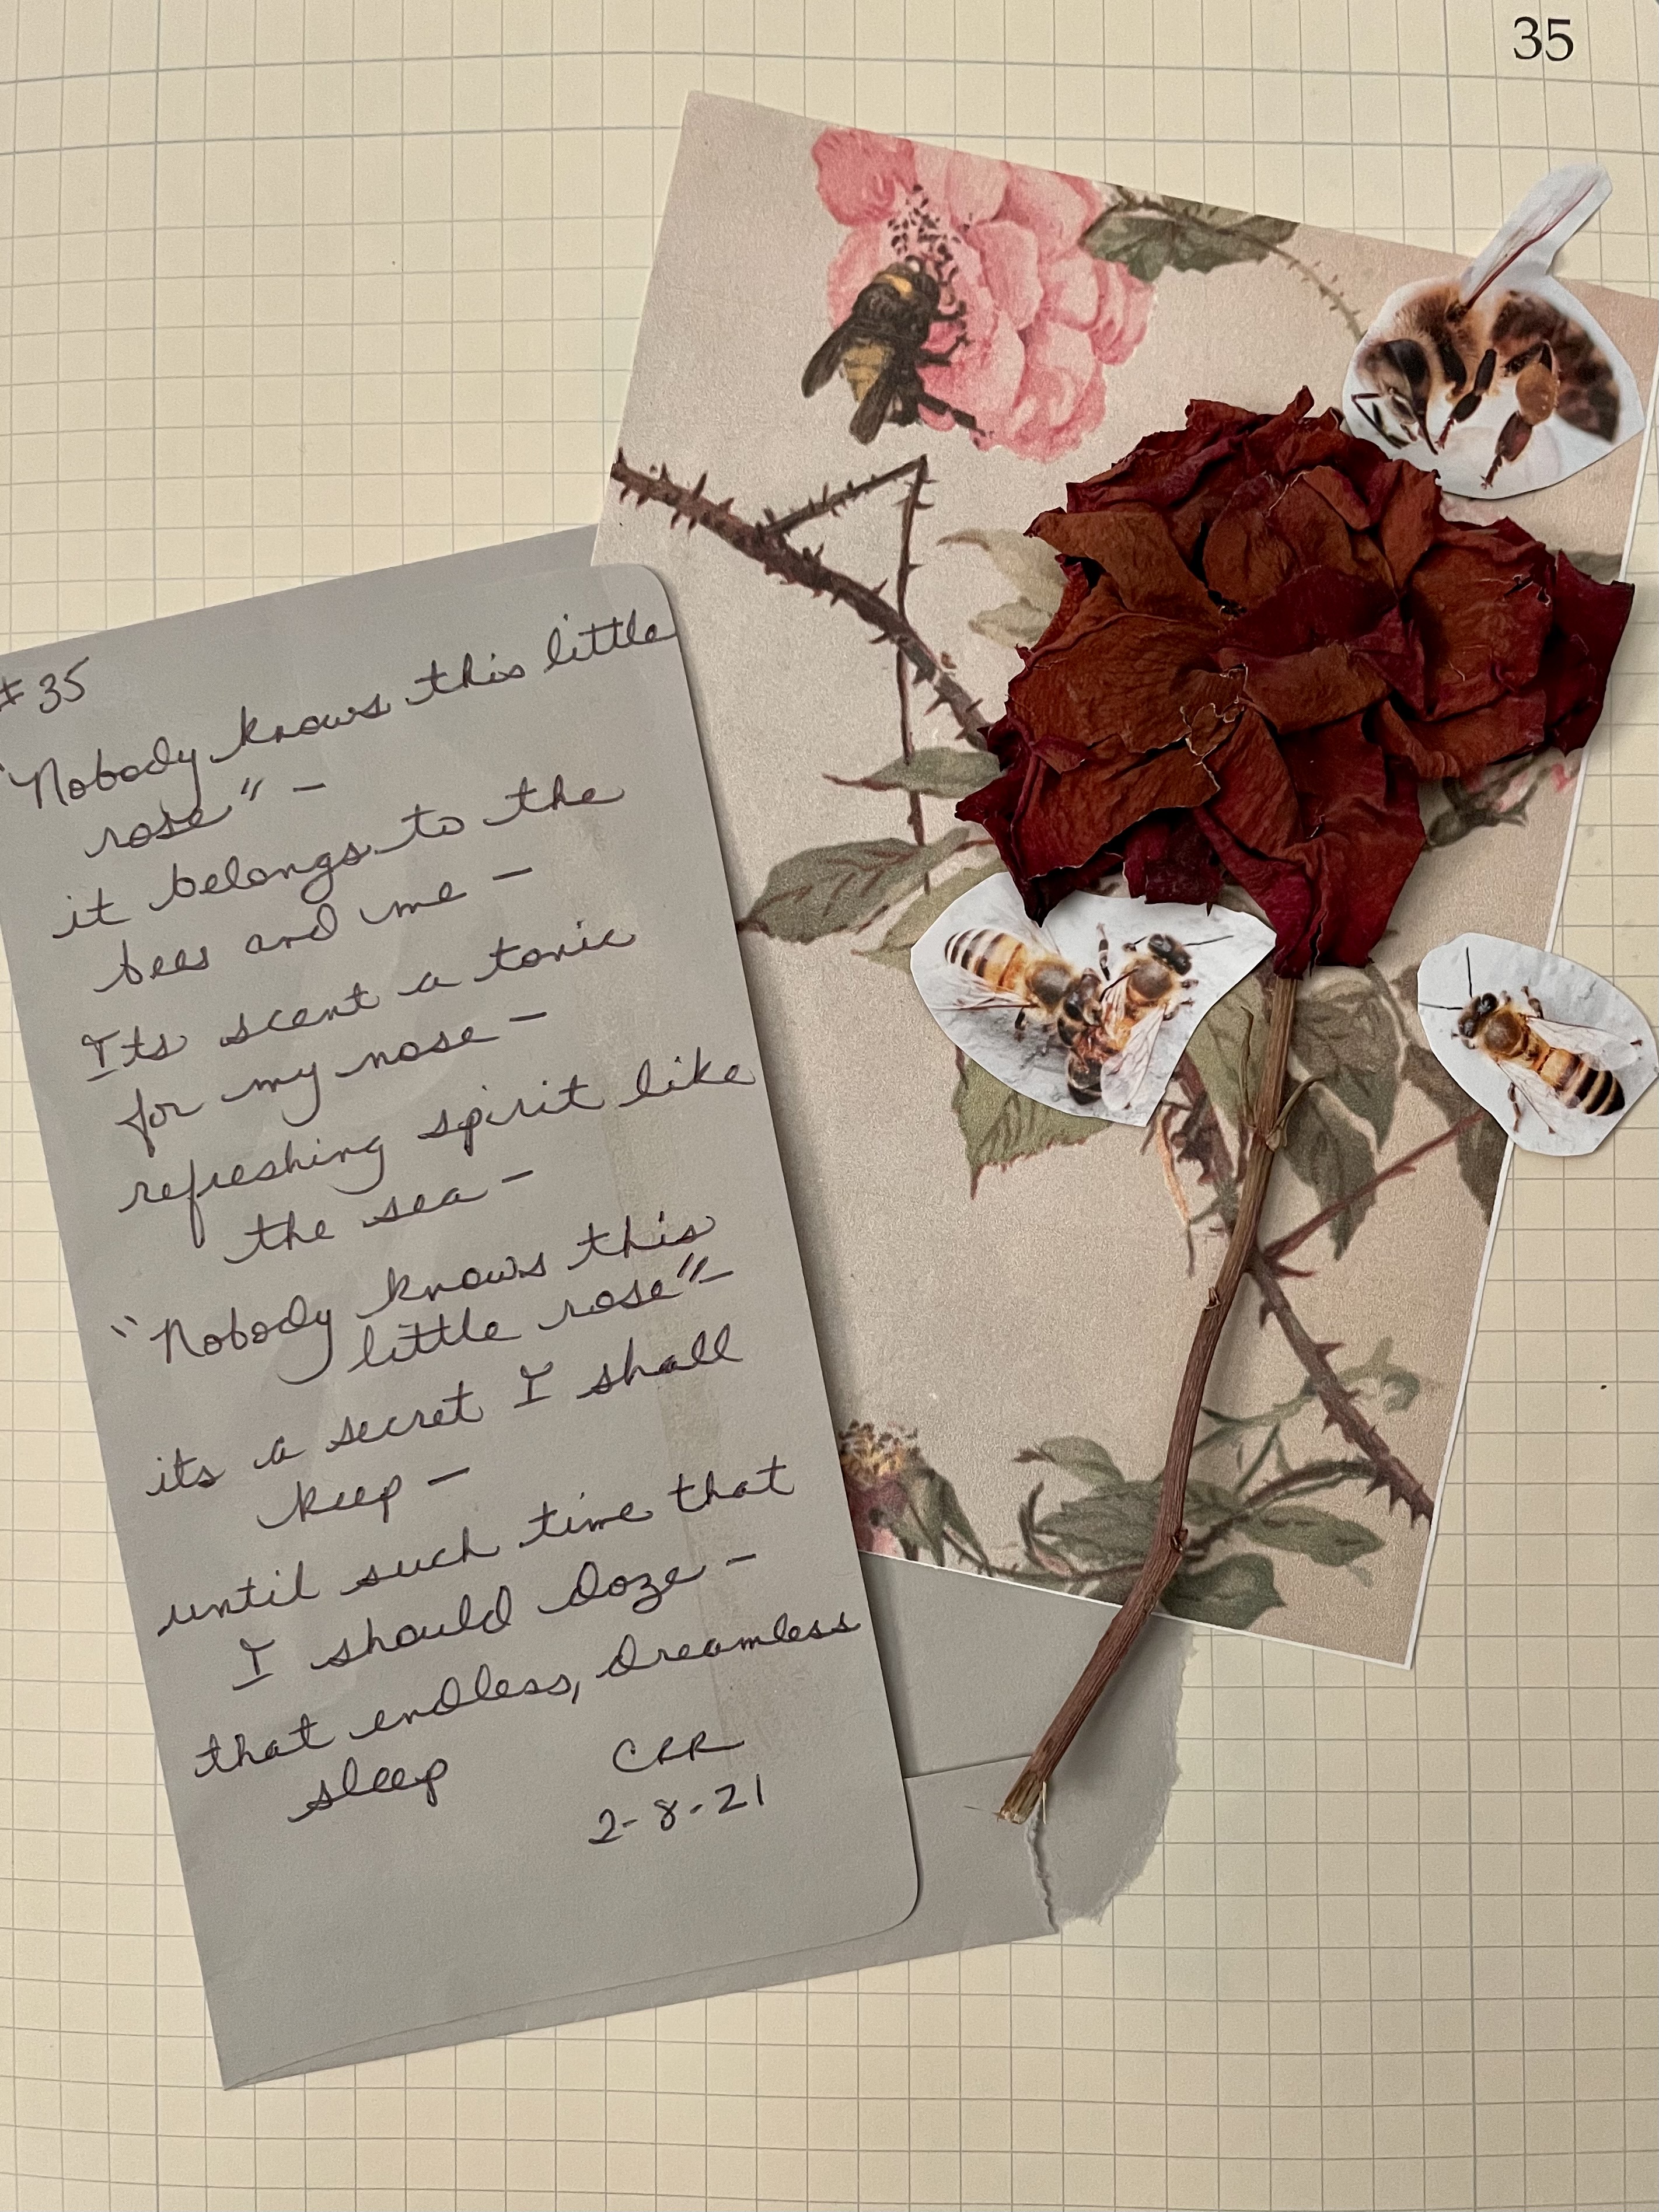 35
#35
"Nobody knows this little
rose" –
it belongs to the
bees and me –
Its scent a tonic
for my nose –
refreshing spirit like
the sea –
"Nobody knows this
little rose" –
its a secret I shall
keep –
until such time that
I should doze –
that endless, dreamless
sleep
CRR
2-8-21